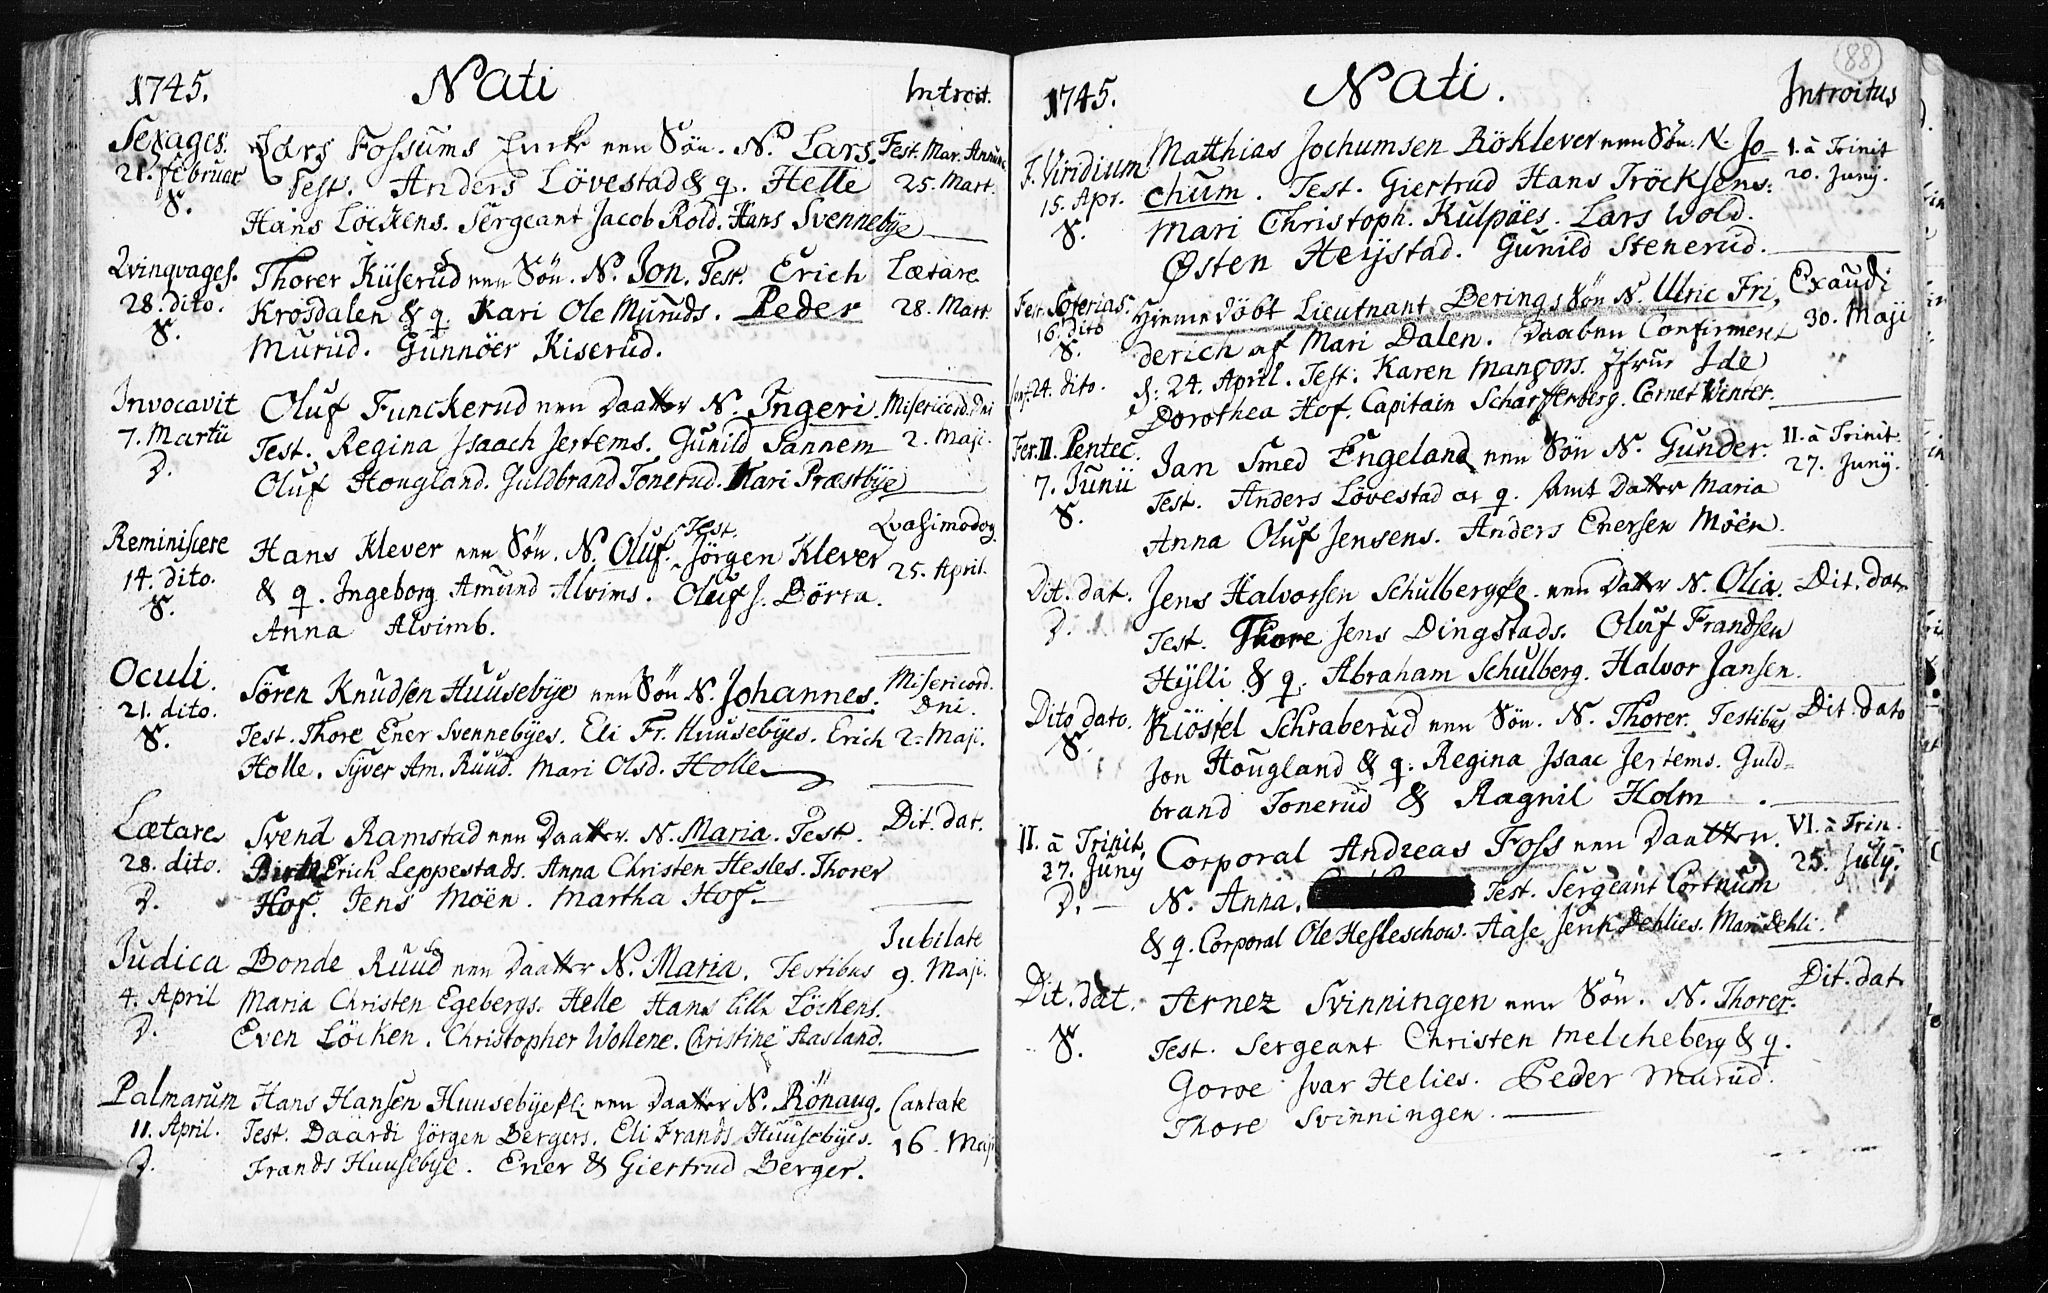 1745. Nati Introit.
Sexages. Lars Fossums Encke een Sön. N. Lars. Fest. Mar. Annunc
21. Februar Test. Anders Lövestad & q. Helle 25. Mart.
S. Hans Löckens. Sergeant Jacob Rold. Hans Svennebye
Qvinqvages. Thorer Kiiserud een Sön. N. Jon. Test. Erich Lætare
28. dito. Krosdalen & q. Kari Ole Muruds. Peder 28. Mart.
S. Murud. Gunnöer Kiserud.
Invocavit Oluf Funckerud een Daatter N. Ingeri. Misericord. Dni
7. Martii Test. Regina Isaach Jertems. Gunild Sannem 2. Maji.
D. Oluf Hougland. Guldbrand Tonerud. Mari Præstbye
Reminiscere Hans Klever een Sön. N. Oluf. Test. Jörgen Klever Qvasimodog.
14. dito. & q. Ingeborg Amund Alvims. Oluf J. Börra. 25. April.
S. Anna Alvimb.
Oculi. Sören Knudsen Huusebye een Sön N. Johannes. Misericord. Dni.
21. dito. Test. Thore Ener Svennebyes. Eli Fr. Huusebyes. Erich 2. Maji.
S. Holle. Syver Am. Ruud. Mari Olsd. Holle
Lætare Svend Ramstad een Daatter. N. Maria. Test. Dit. dat.
28. dito. Birte Erich Leppestads. Anna Christen Hesles. Thorer
D. Hof. Jens Möen. Martha Hof.
Judica Bonde Ruud een Daatter N. Maria. Testibus Jubilate
4. April Maria Christen Egebergs. Helle Hans Lille Löckens. 9. Maji.
D. Even Löcken. Christopher Wollene. Christine Aasland.
Palmarum Hans Hansen Huusebye een Daatter N. Rönaug. Cantate
11. April. Test. Daardi Jörgen Bergers. Eli Frands Huusebyes. 16. Maji
D. Frands Huusebye. Ener & Giertrud Berger.
88
1745. Nati. Introitus
F. Viridium Matthias Jochumsen Röklever een Sön. N. Jo- I. à Trinit
15. Apr. chum. Test. Giertrud Hans Tröcksens. 20. Junÿ.
S. Mari Christoph. Kulpäes. Lars Wold.
Østen Heijstad. Gunild Stenerud.
Fer. Soterias. Hiemedöbt Lieutnant Berings Sön N. Ulric Fri, Exaudi
16. Dito derich af Mari Dalen. Daaben Confirmeret 30. Maji
S.
24. dito. d: 24. April. Test. Karen Mangors. Jfrue Ide
Dorothea Hof. Capitain Scharffenberg. Cornet Winter.
Fer. II. Pentec. Jan Smed Engeland een Sön N. Gunder. II. à Trinit.
7. Junii Test. Anders Lövestad og q. samt Datter Maria 27. Junÿ.
S. Anna Oluf Jensens. Anders Enersen Möen.
Dit. dat. Jens Halvorsen Schulbergs een Datter N. Olia. Dit. dat.
D. Test. Thore Jens Dingstads. Oluf Frandsen
Hÿlli & q. Abraham Schulberg. Halvor Jansen.
Dito dato. Kiöstel Schraberud een Sön. N. Thorer. Testibus Dit. dato
S. Jon Hougland & q. Regina Isaac Jertems. Guld-
brand Tonerud & Ragnil Holm.
II. à Trinit. Corporal Andreas Foss een Daatter. VI. à Trin.
27. Junÿ N. Anna. Test. Sergeant Cortnum 25. Julÿ.
D. & q. Corporal Ole Hesleschow. Aase Jenk Dehlies. Mari Dehli.
Dit. dat. Arnez Svinningen een Sön. N. Thorer. Dit. dat.
S. Test. Sergeant Christen Melcheberg & q.
Goroe Ivar Helies. Peder Murud.
Thore Svinningen.